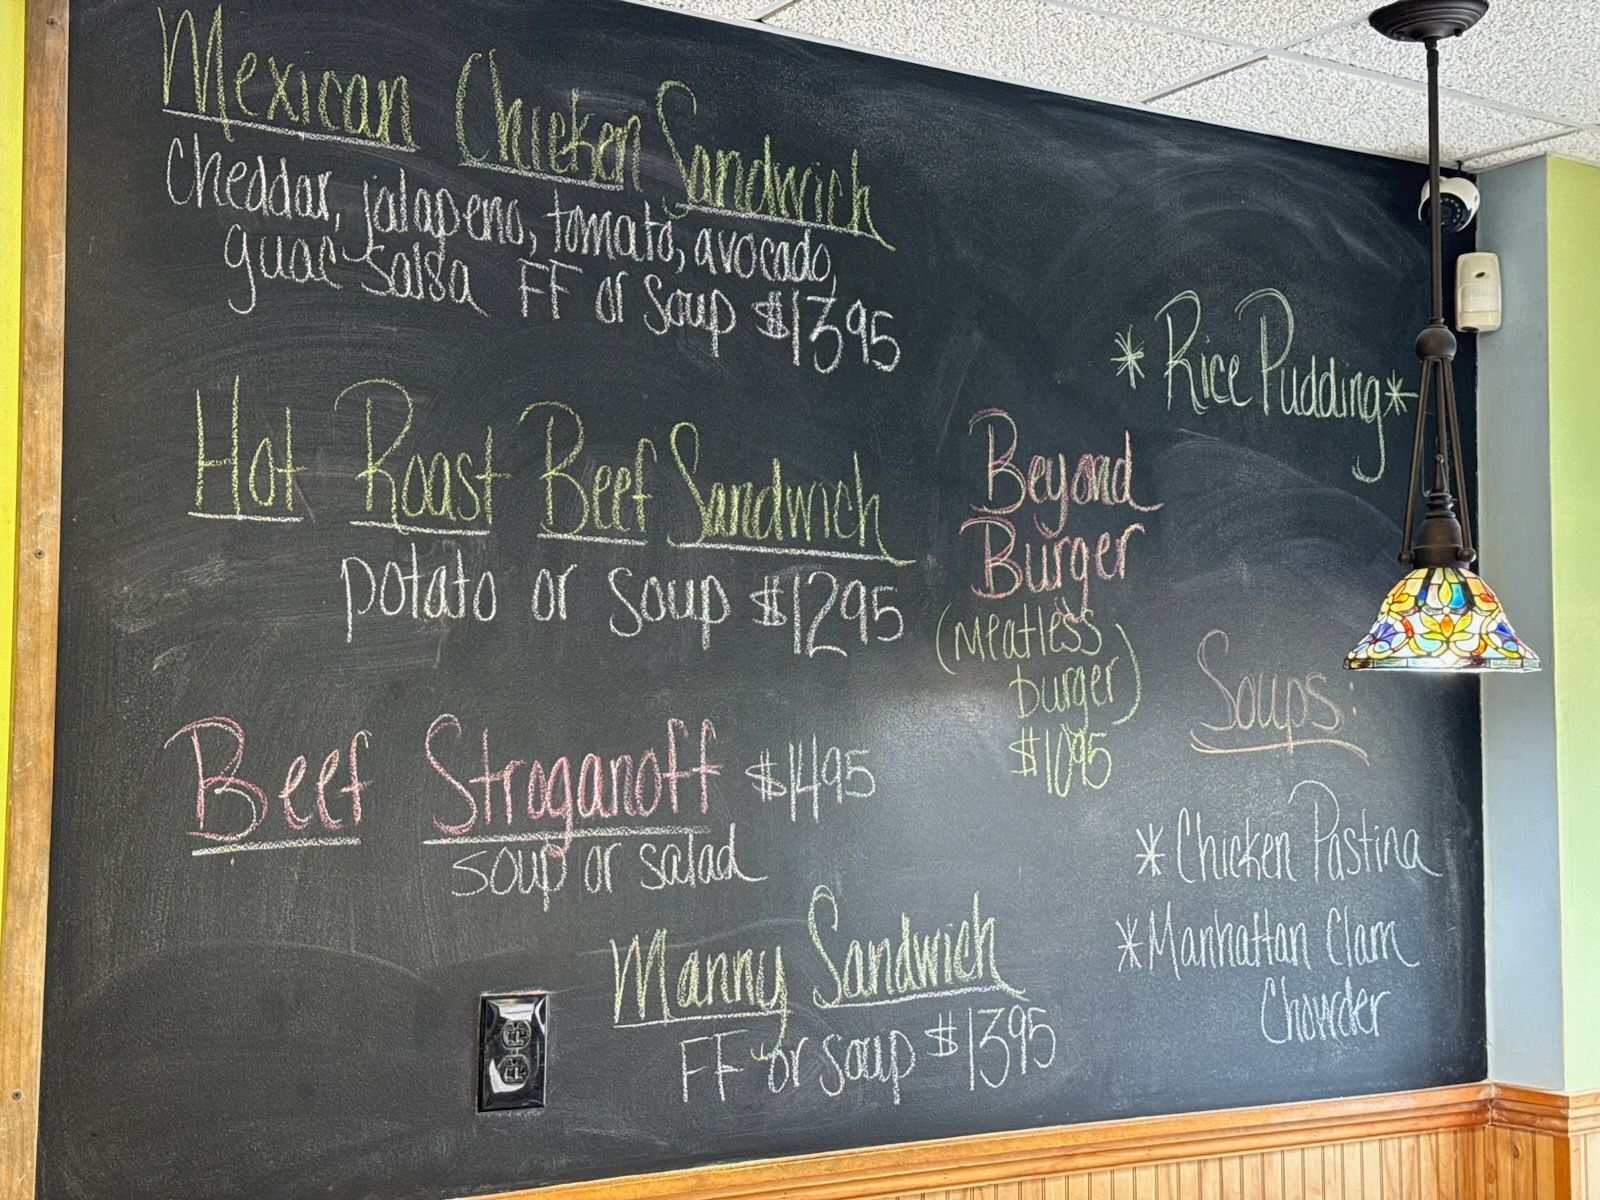 Mexican Chicken Sandwich
Cheddar, jalapeno, tomato, avocado,
guac salsa FF or soup $1395
Hot Roast Beef Sandwich
potato or soup $1295
Beef Stroganoff $1495
soup or salad
Manny Sandwich
FF or soup $1395
Beyond
Burger
(Meatless
burger)
$1095
*Rice Pudding*
Soups:
*Chicken Pastina
*Manhattan Clam
Chowder